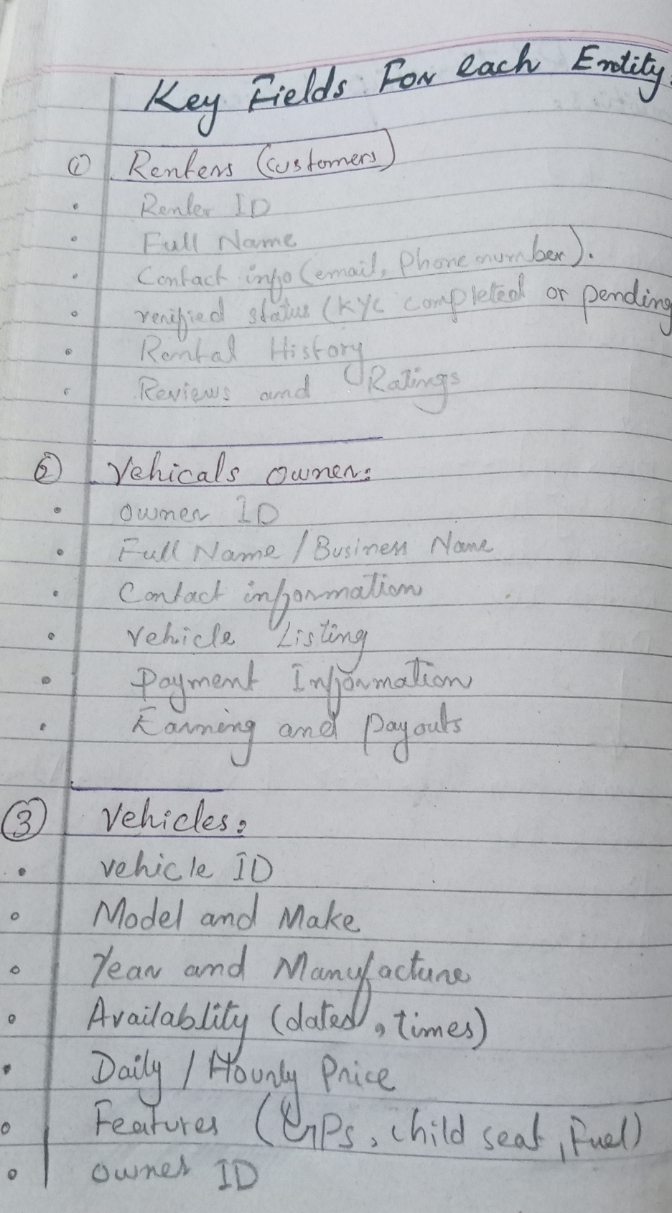 Key Fields For each Entity.
① Renters (customers)
• Renter ID
• Full Name
• Contact info (email, Phone number).
• verified status (KYC completed or pending
• Rental History
• Reviews and Ratings
② Vehicals owner:
• owner ID
• Full Name / Business Name
• Contact information
• vehicle Listing
• Payment Information
• Earning and payouts
③ Vehicles:
• vehicle ID
• Model and Make
• Year and Manufacture
• Availablity (dated, times)
• Daily / Hourly Price
• Features (GPs, child seat, Fuel)
• owner ID